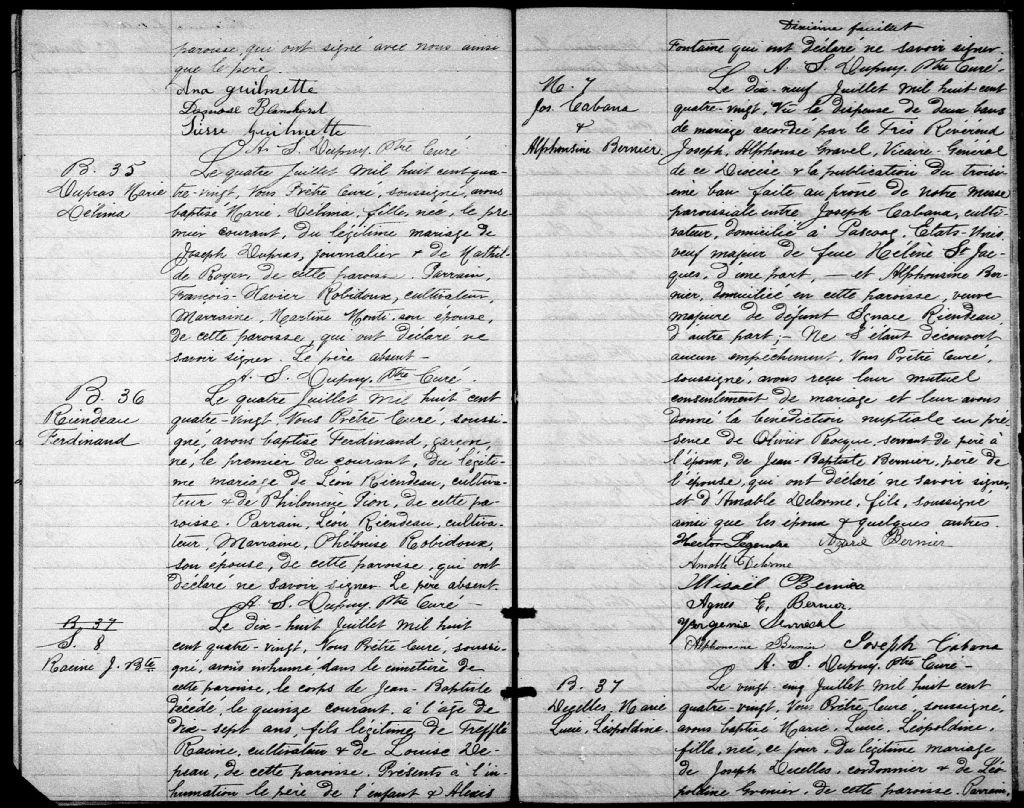 paroisse, qui ont signé avec nous ainsi
que le père.
Ana Guilmette
Damase Blanchard
Pierre Guilmette
A. S. Dupuy. Ptre Curé
B. 35
Dupras Marie
Délima
Le quatre Juillet mil huit cent qua-
tre-vingt, Nous Prêtre Curé, soussigné, avons
baptisé Marie. Délima, fille, née, le pre-
mier courant, du légitime mariage de
Joseph Dupras, journalier & de Mathil-
de Royer, de cette paroisse. Parrain,
François-Xavier Robidoux, cultivateur,
Marraine, Martine Monti, son épouse,
de cette paroisse, qui ont déclaré ne
savoir signer. Le père absent-
A. S. Dupuy. Ptre Curé.
B. 36
Riendeau
Ferdinand
Le quatre Juillet mil huit cent
quatre-vingt, Nous Prêtre Curé, soussi-
gné, avons baptisé Ferdinand, garçon
né, le premier du courant, du légiti-
me mariage de Léon Riendeau, cultiva-
teur & de Philomène Pion, de cette pa-
roisse. Parrain, Léon Riendeau, cultiva-
teur, Marraine, Phélonise Robidoux,
son épouse, de cette paroisse, qui ont
déclaré ne savoir signer. Le père absent.
A. S. Dupuy Ptre Curé-
B 37
S. 8
Racine J. Bte
Le dix-huit Juillet mil huit
cent quatre-vingt, Nous Prêtre Curé, soussi-
gné, avons inhumé dans le cimetière de
cette paroisse, le corps de Jean-Baptiste
décédé, le quinze courant, à l'âge de
dix-sept ans, fils légitime de Trefflé
Racine, cultivateur & de Louise De-
peau, de cette paroisse. Présents à l'in-
humation le père de l'enfant & Alexis
Dixième feuillet
Fontaine qui ont déclaré ne savoir signer.
A. S. Dupuy. Ptre Curé-
M. 7
Jos. Cabana
&
Alphonsine Bernier
Le dix-neuf Juillet mil huit cent
quatre-vingt, Vu la dispense de deux bans
de mariage accordée par le Très Révérend
Joseph, Alphonse Gravel, Vicaire-Général
de ce Diocèse & la publication du troisi-
ème ban faite au prône de notre messe
paroissiale entre Joseph Cabana, culti-
vateur, domicilié à Pascoag, Etats-Unis
veuf majeur de feue Hélène St Jac-
ques, d'une part, - et Alphonsine Ber-
nier, domiciliée en cette paroisse, veuve
majeure de défunt Ignace Riendeau
d'autre part; - Ne s'étant découvert
aucun empêchement, Nous Prêtre Curé,
soussigné, avons reçu leur mutuel
consentement de mariage et leur avons
donné la bénédiction nuptiale en pré-
sence de Olivier Rocque, servant de père à
l'époux, de Jean-Baptiste Bernier, père de
l'épouse, qui ont déclaré ne savoir signer,
et d'Amable Delorme, fils, soussigné,
ainsi que les époux & quelques autres.
Hector Legendre Azarie Bernier
Amable Delorme
Misaël Bernier
Agnes E. Bernier.
Alphonsine Bernier Joseph Cabana
A. S. Dupuy. Ptre Curé-
B. 37
Decelles, Marie
Lucie, Léopoldine.
Le vingt-cinq Juillet mil huit cent
quatre-vingt, Nous Prêtre Curé, soussigné,
avons baptisé Marie, Lucie, Léopoldine,
fille, née, ce jour, du légitime mariage
de Joseph Decelles, cordonnier & de Léo-
poldine Grenier, de cette paroisse. Parrain,